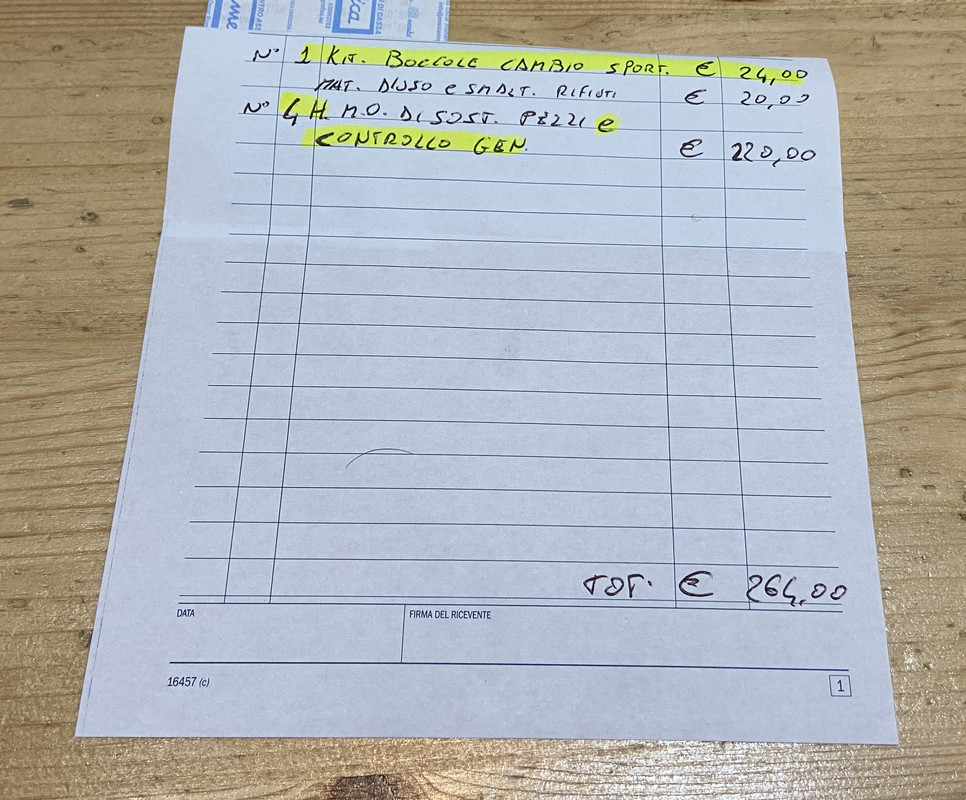 N° 1 KIT. BOCCOLE CAMBIO SPORT. € 24,00
MAT. D'USO e SMALT. RIFIUTI € 20,00
N° 4 H. M.O. DI SOST. PEZZI e
CONTROLLO GEN. € 220,00
TOT. € 264,00
DATA
FIRMA DEL RICEVENTE
16457 (c)
1